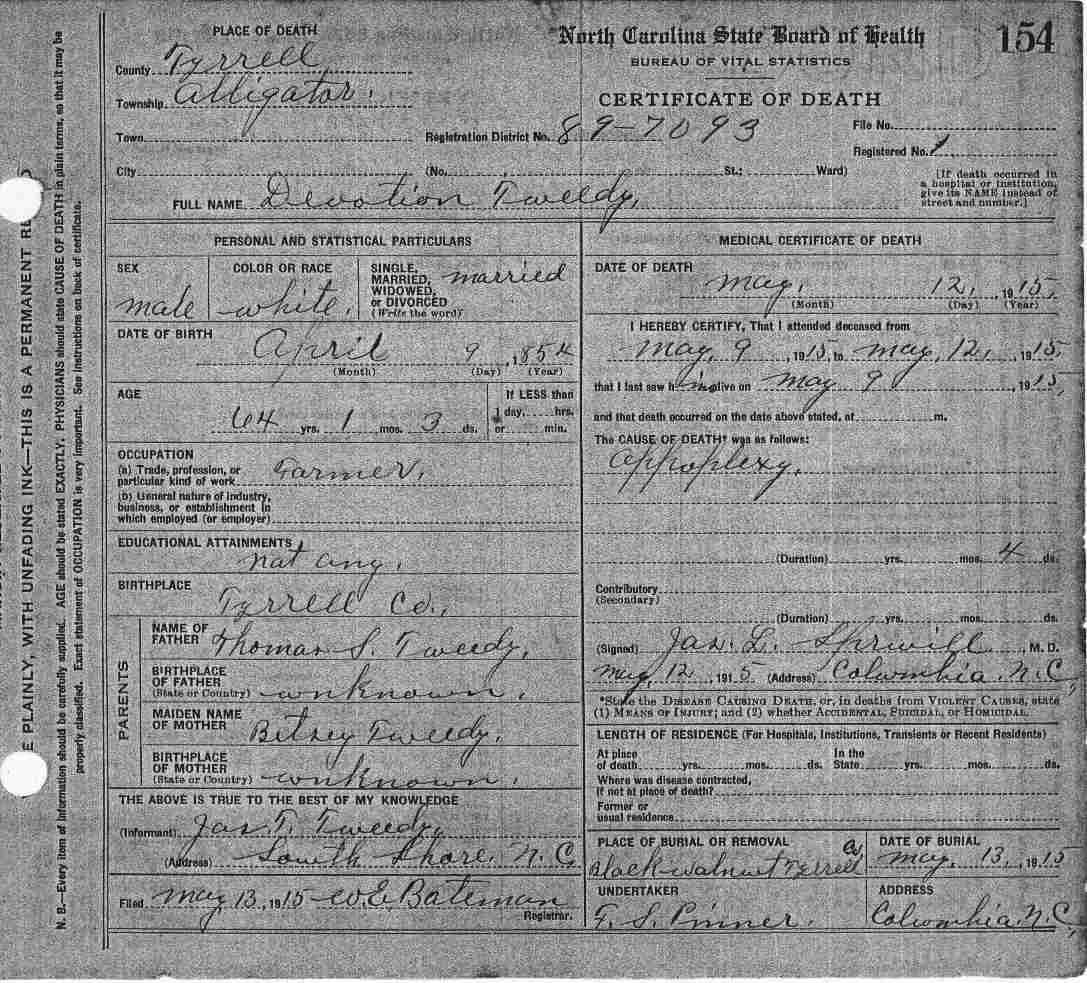 154
North Carolina State Board of Health
BUREAU OF VITAL STATISTICS
CERTIFICATE OF DEATH
PLACE OF DEATH
County Tyrrell
Township Alligator.
Town
Registration District No. 89-7093
File No.
Registered No. 1
City
(No. St.; Ward)
[If death occurred in
a hospital or institution,
give its NAME instead of
street and number.]
FULL NAME Devotion Tweedy.
PERSONAL AND STATISTICAL PARTICULARS
SEX
male
COLOR OR RACE
white.
SINGLE,
MARRIED,
WIDOWED,
or DIVORCED
(Write the word)
married
DATE OF BIRTH
April 9, 1854
(Month) (Day) (Year)
AGE
64 yrs. 1 mos. 3 ds.
If LESS than
1 day, hrs.
or min.
OCCUPATION
(a) Trade, profession, or
particular kind of work Farmer.
(b) General nature of industry,
business, or establishment in
which employed (or employer)
EDUCATIONAL ATTAINMENTS
nat any.
BIRTHPLACE
Tyrrell Co.,
PARENTS
NAME OF
FATHER Thomas S. Tweedy,
BIRTHPLACE
OF FATHER
(State or Country) unknown.
MAIDEN NAME
OF MOTHER Betsey Tweedy.
BIRTHPLACE
OF MOTHER
(State or Country) unknown.
THE ABOVE IS TRUE TO THE BEST OF MY KNOWLEDGE
(Informant) Jas. T. Tweedy,
(Address) South Shore, N.C.
Filed May 13, 1915 W.E. Bateman
Registrar.
MEDICAL CERTIFICATE OF DEATH
DATE OF DEATH
May, 12, 1915,
(Month) (Day) (Year)
I HEREBY CERTIFY, That I attended deceased from
May, 9, 1915, to May, 12, 1915,
that I last saw him alive on May 9, 1915,
and that death occurred on the date above stated, at m.
The CAUSE OF DEATH* was as follows:
Appoplexy.
(Duration) yrs. mos. 4 ds.
Contributory
(Secondary)
(Duration) yrs. mos. ds.
(Signed) Jas. L. Sprwill, M. D.
May, 12, 1915 (Address) Columbia. N.C.
*State the DISEASE CAUSING DEATH, or, in deaths from VIOLENT CAUSES, state
(1) MEANS OF INJURY; and (2) whether ACCIDENTAL, SUICIDAL, or HOMICIDAL.
LENGTH OF RESIDENCE (For Hospitals, Institutions, Transients or Recent Residents)
At place
of death yrs. mos. ds.
In the
State yrs. mos. ds.
Where was disease contracted,
if not at place of death?
Former or
usual residence
PLACE OF BURIAL OR REMOVAL
Black walnut Tyrrell Co.
DATE OF BURIAL
May. 13, 1915
UNDERTAKER
F. S. Pinner.
ADDRESS
Columbia. N.C.,
E PLAINLY, WITH UNFADING INK—THIS IS A PERMANENT RE
N. B.—Every item of information should be carefully supplied. AGE should be stated EXACTLY. PHYSICIANS should state CAUSE OF DEATH in plain terms, so that it may be
properly classified. Exact statement of OCCUPATION is very important. See instructions on back of certificate.